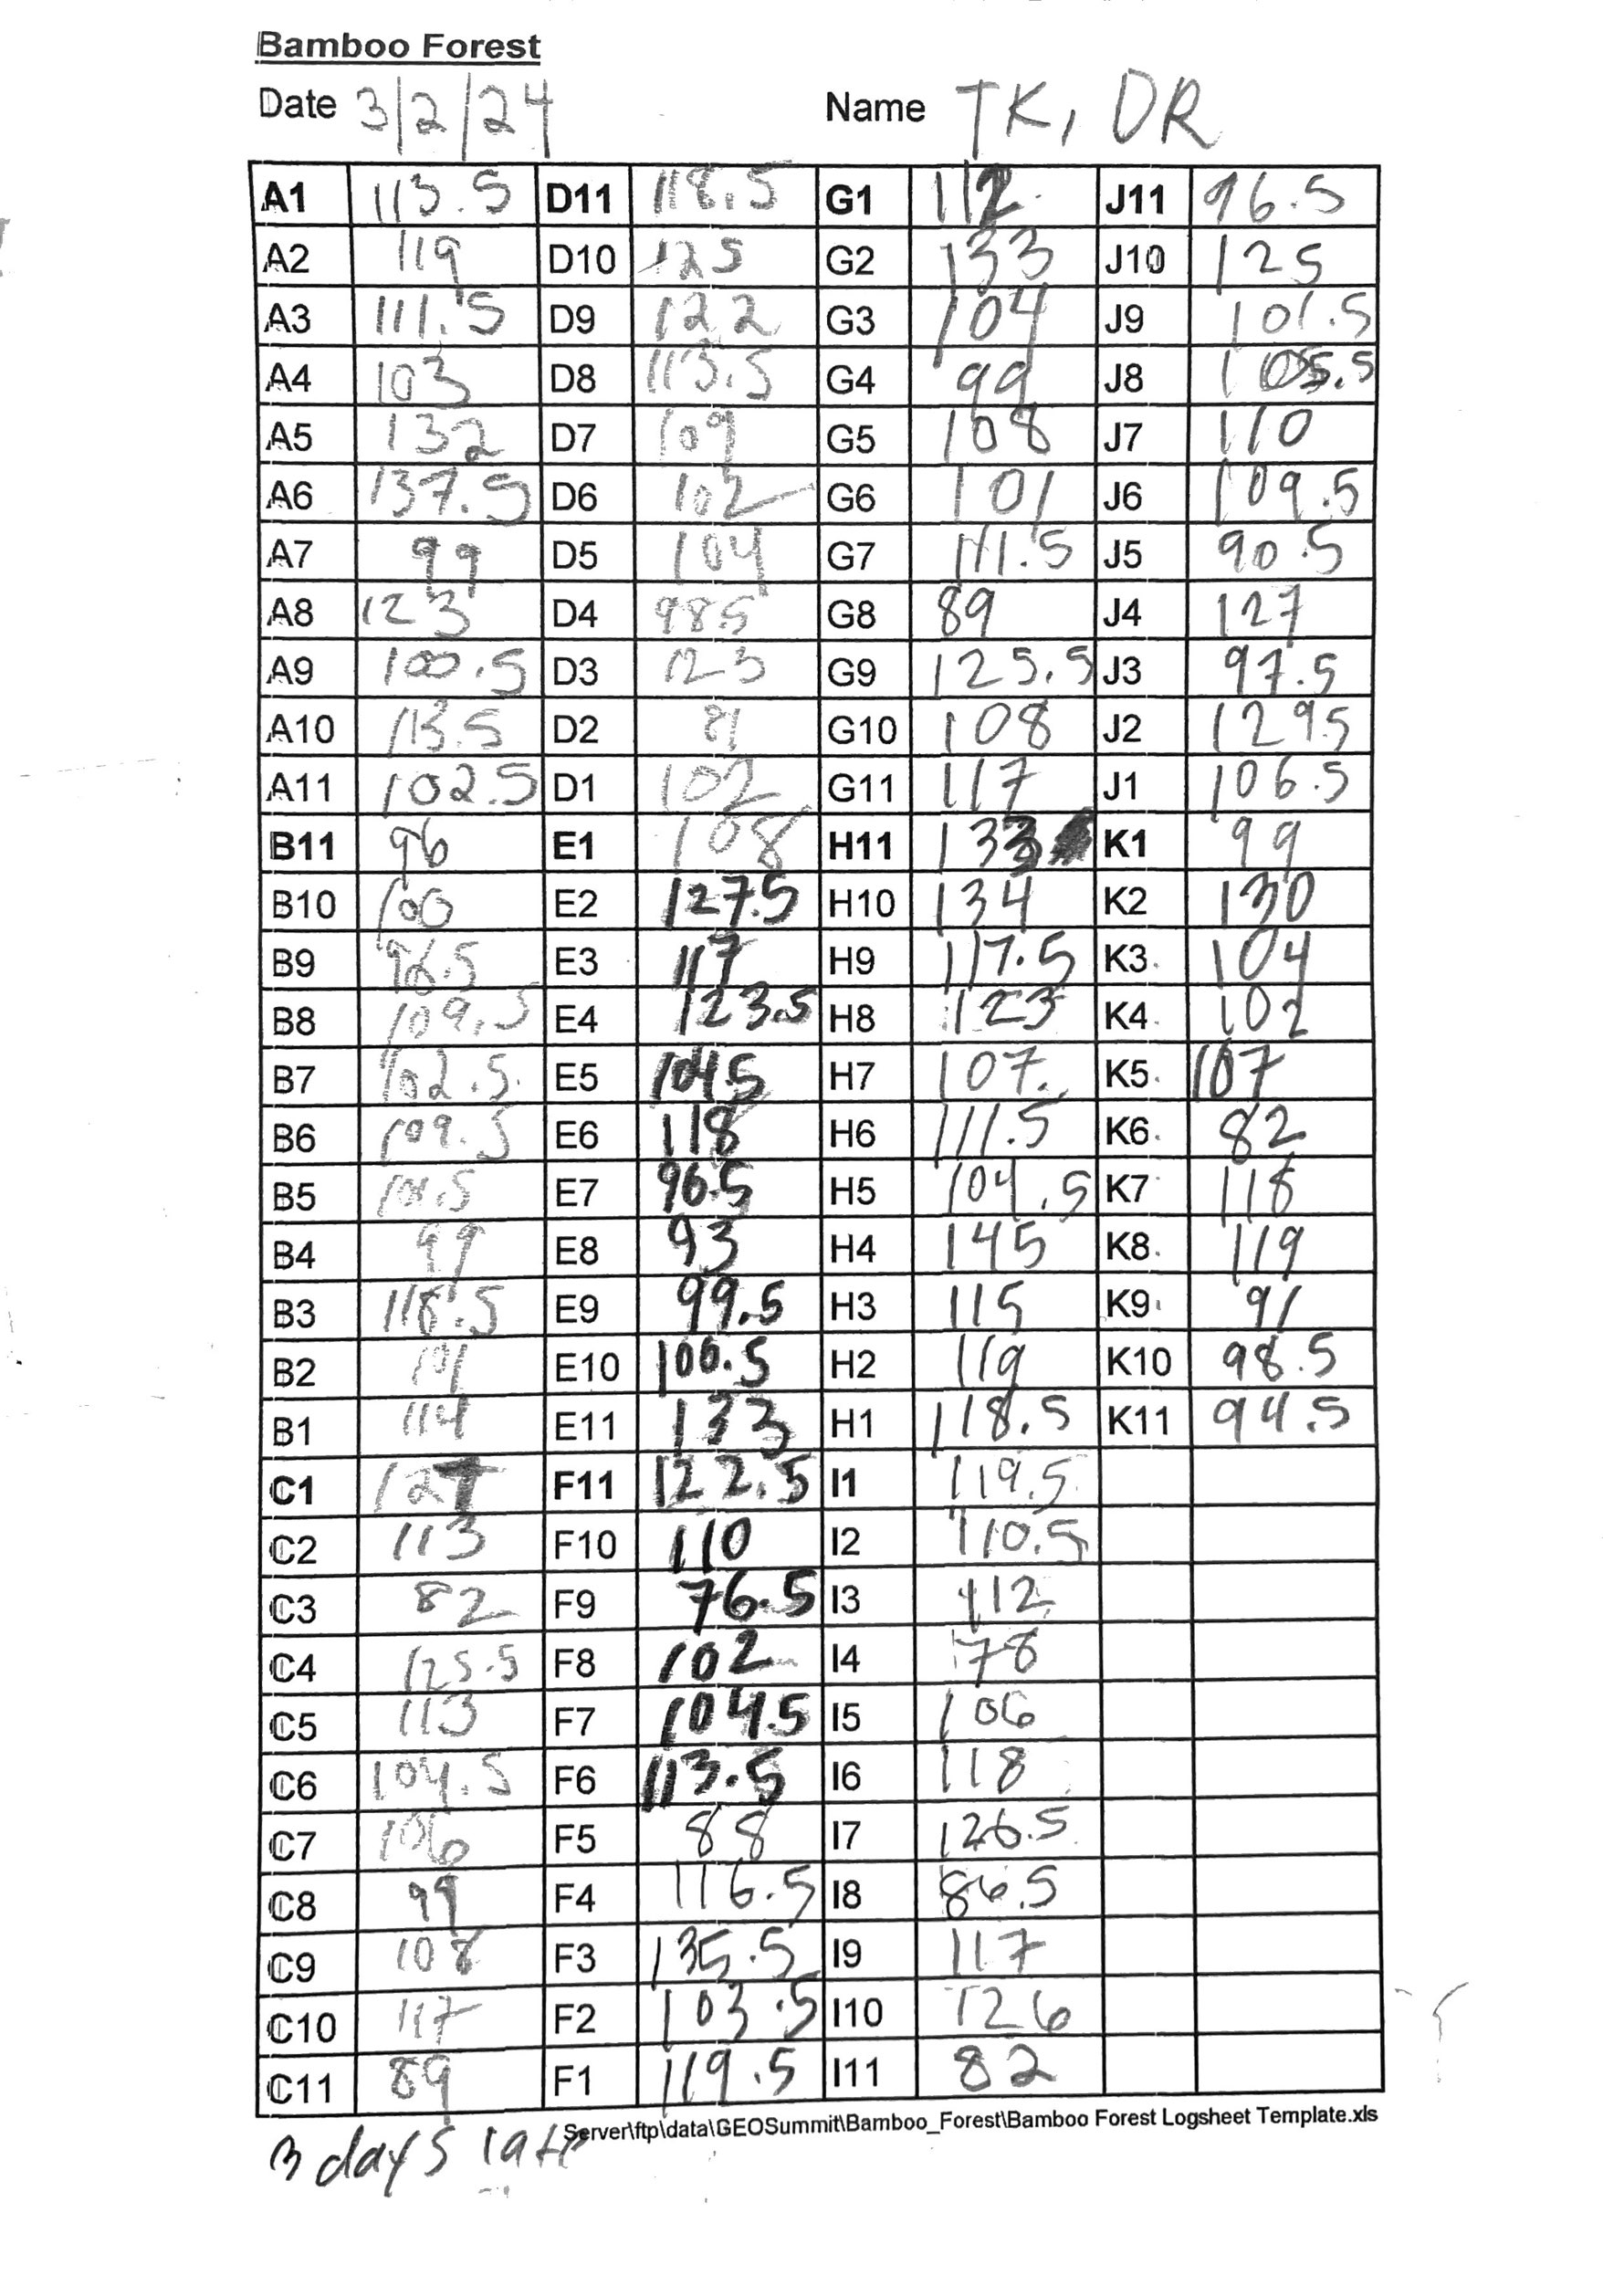 Bamboo Forest
Date 3/2/24 Name TK, DR
A1 113.5 D11 118.5 G1 112 J11 96.5
A2 119 D10 125 G2 133 J10 125
A3 111.5 D9 122 G3 104 J9 101.5
A4 103 D8 113.5 G4 99 J8 105.5
A5 132 D7 109 G5 108 J7 110
A6 137.5 D6 102 G6 101 J6 109.5
A7 99 D5 104 G7 111.5 J5 90.5
A8 123 D4 98.5 G8 89 J4 127
A9 100.5 D3 123 G9 125.5 J3 97.5
A10 113.5 D2 81 G10 108 J2 129.5
A11 102.5 D1 102 G11 117 J1 106.5
B11 96 E1 108 H11 133 K1 99
B10 100 E2 127.5 H10 134 K2 130
B9 96.5 E3 117 H9 117.5 K3 104
B8 109.5 E4 123.5 H8 123 K4 102
B7 102.5 E5 104.5 H7 107 K5 107
B6 109.5 E6 118 H6 111.5 K6 82
B5 E7 96.5 H5 104.5 K7 118
B4 99 E8 93 H4 145 K8 119
B3 118.5 E9 99.5 H3 115 K9 91
B2 101 E10 100.5 H2 119 K10 98.5
B1 114 E11 133 H1 118.5 K11 94.5
C1 127 F11 122.5 I1 119.5
C2 113 F10 110 I2 110.5
C3 82 F9 76.5 I3 112
C4 125.5 F8 102 I4 78
C5 113 F7 104.5 I5 106
C6 104.5 F6 113.5 I6 118
C7 106 F5 88 I7 126.5
C8 99 F4 116.5 I8 86.5
C9 108 F3 135.5 I9 117
C10 117 F2 103.5 I10 126
C11 89 F1 119.5 I11 82
Server\ftp\data\GEOSummit\Bamboo_Forest\Bamboo Forest Logsheet Template.xls
3 days late